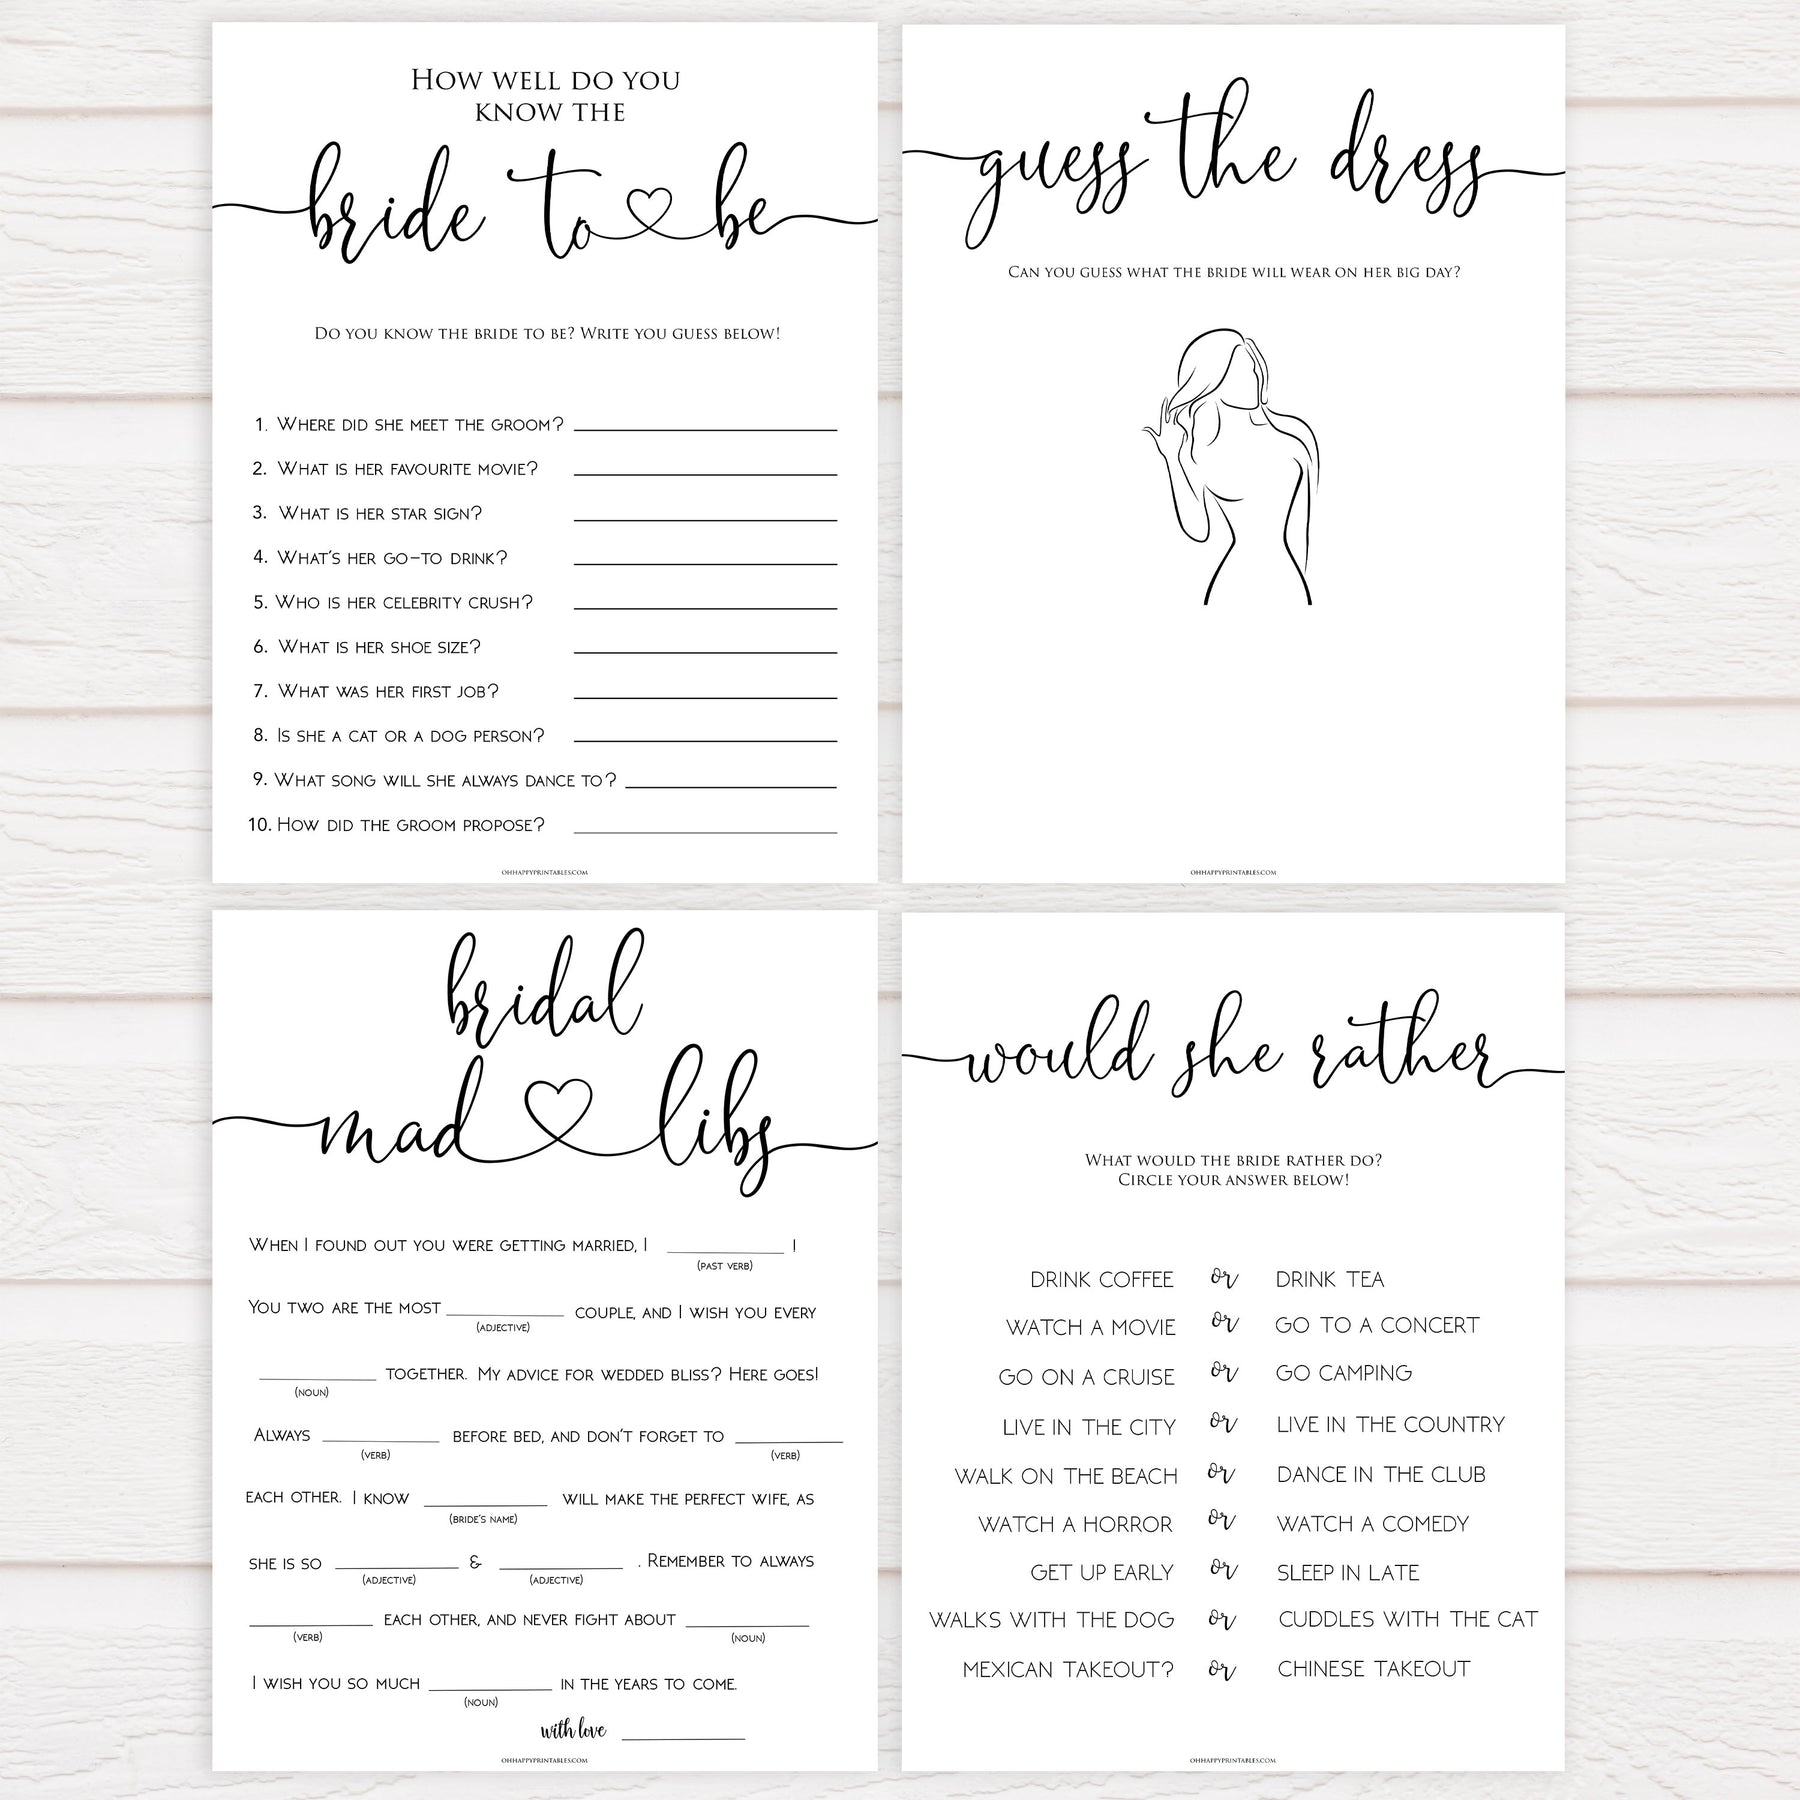 How well do you
know the
bride to be
Do you know the bride to be? Write you guess below!
1. Where did she meet the groom?
2. What is her favourite movie?
3. What is her star sign?
4. What's her go-to drink?
5. Who is her celebrity crush?
6. What is her shoe size?
7. What was her first job?
8. Is she a cat or a dog person?
9. What song will she always dance to?
10. How did the groom propose?
ohhappyprintables.com
guess the dress
Can you guess what the bride will wear on her big day?
ohhappyprintables.com
bridal
mad libs
When I found out you were getting married, I ________ !
(past verb)
You two are the most ________ couple, and I wish you every
(adjective)
________ together. My advice for wedded bliss? Here goes!
(noun)
Always ________ before bed, and don't forget to ________
(verb) (verb)
each other. I know ________ will make the perfect wife, as
(bride's name)
she is so ________ & ________ . Remember to always
(adjective) (adjective)
________ each other, and never fight about ________
(verb) (noun)
I wish you so much ________ in the years to come.
(noun)
with love ________
ohhappyprintables.com
would she rather
What would the bride rather do?
Circle your answer below!
DRINK COFFEE or DRINK TEA
WATCH A MOVIE or GO TO A CONCERT
GO ON A CRUISE or GO CAMPING
LIVE IN THE CITY or LIVE IN THE COUNTRY
WALK ON THE BEACH or DANCE IN THE CLUB
WATCH A HORROR or WATCH A COMEDY
GET UP EARLY or SLEEP IN LATE
WALKS WITH THE DOG or CUDDLES WITH THE CAT
MEXICAN TAKEOUT? or CHINESE TAKEOUT
ohhappyprintables.com